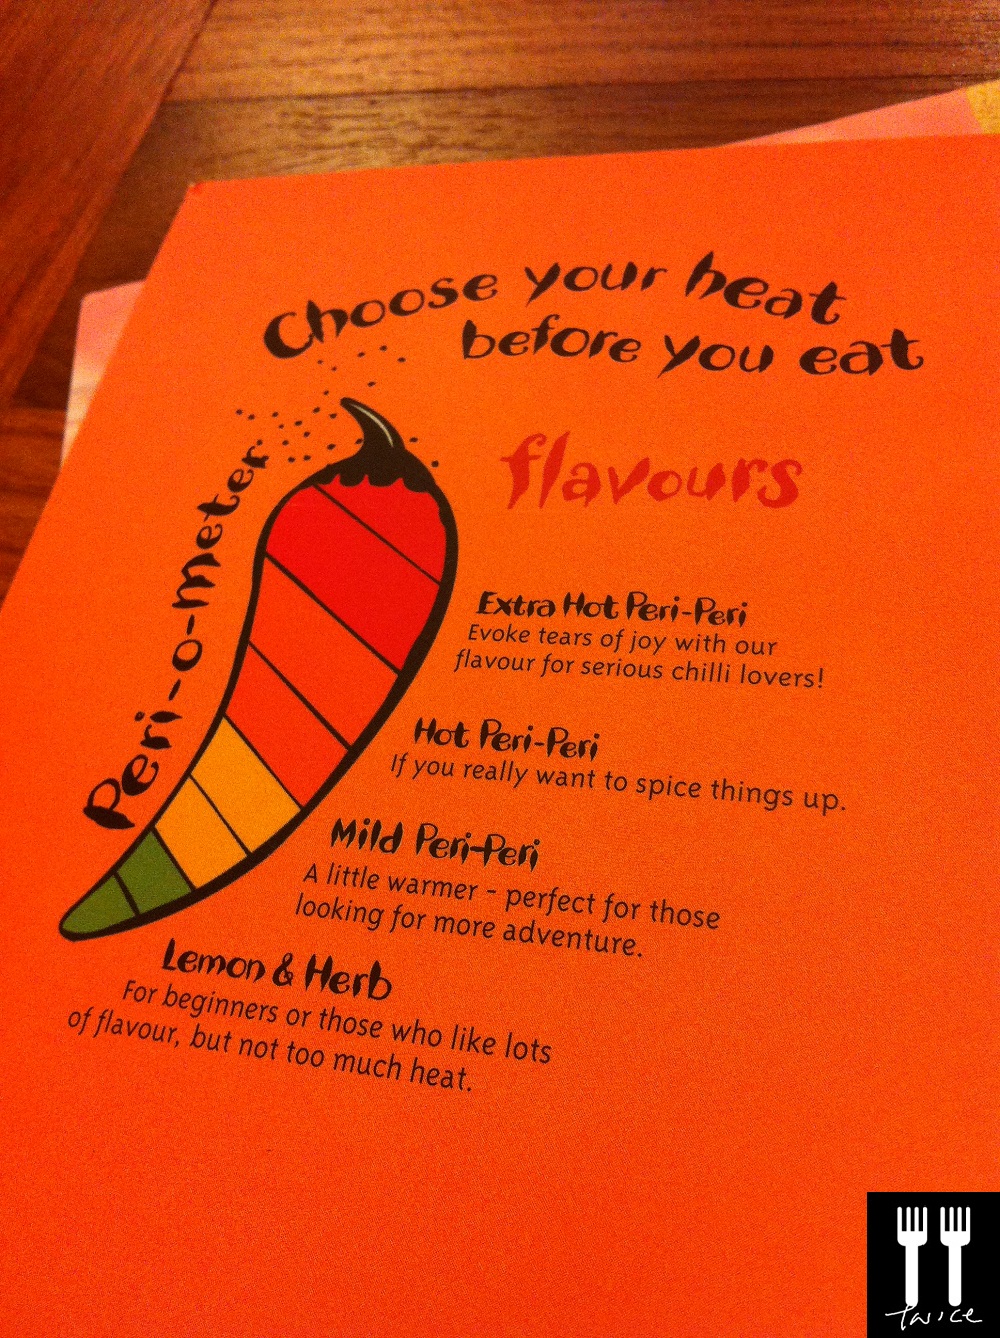 Choose your heat
before you eat
Peri-o-meter
flavours
Extra Hot Peri-Peri
Evoke tears of joy with our
flavour for serious chilli lovers!
Hot Peri-Peri
If you really want to spice things up.
Mild Peri-Peri
A little warmer - perfect for those
looking for more adventure.
Lemon & Herb
For beginners or those who like lots
of flavour, but not too much heat.
twice